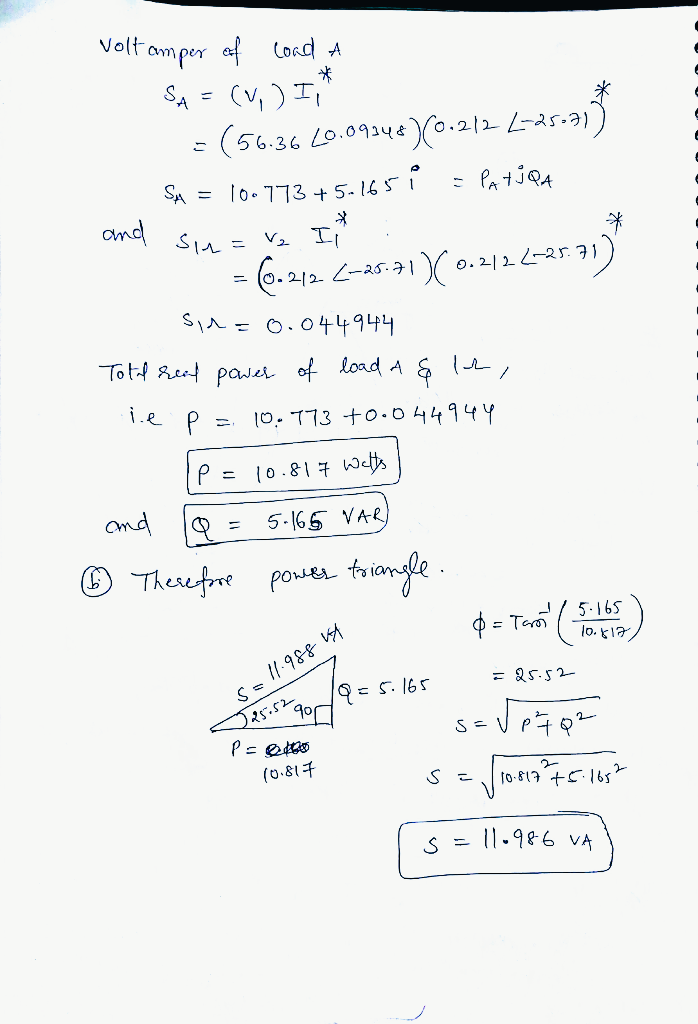 Volt amper of load A
S_A = (V₁) I₁*
= (56.36 ∠0.09348)(0.212 ∠-25.71)*
S_A = 10.773 + 5.165 i = P_A + jQ_A
and S₁ᵣ = V₂ I₁*
= (0.212 ∠-25.71)(0.212 ∠-25.71)*
S₁ᵣ = 0.044944
Total real power of load A & 1r,
i.e P = 10.773 + 0.044944
P = 10.817 Watts
and Q = 5.165 VAR
(b) Therefore power triangle.
S = 11.988 VA
25.52 90
Q = 5.165
P =
10.817
φ = Tan⁻¹ (5.165/10.817)
= 25.52
S = √P² + Q²
S = √10.817² + 5.165²
S = 11.986 VA